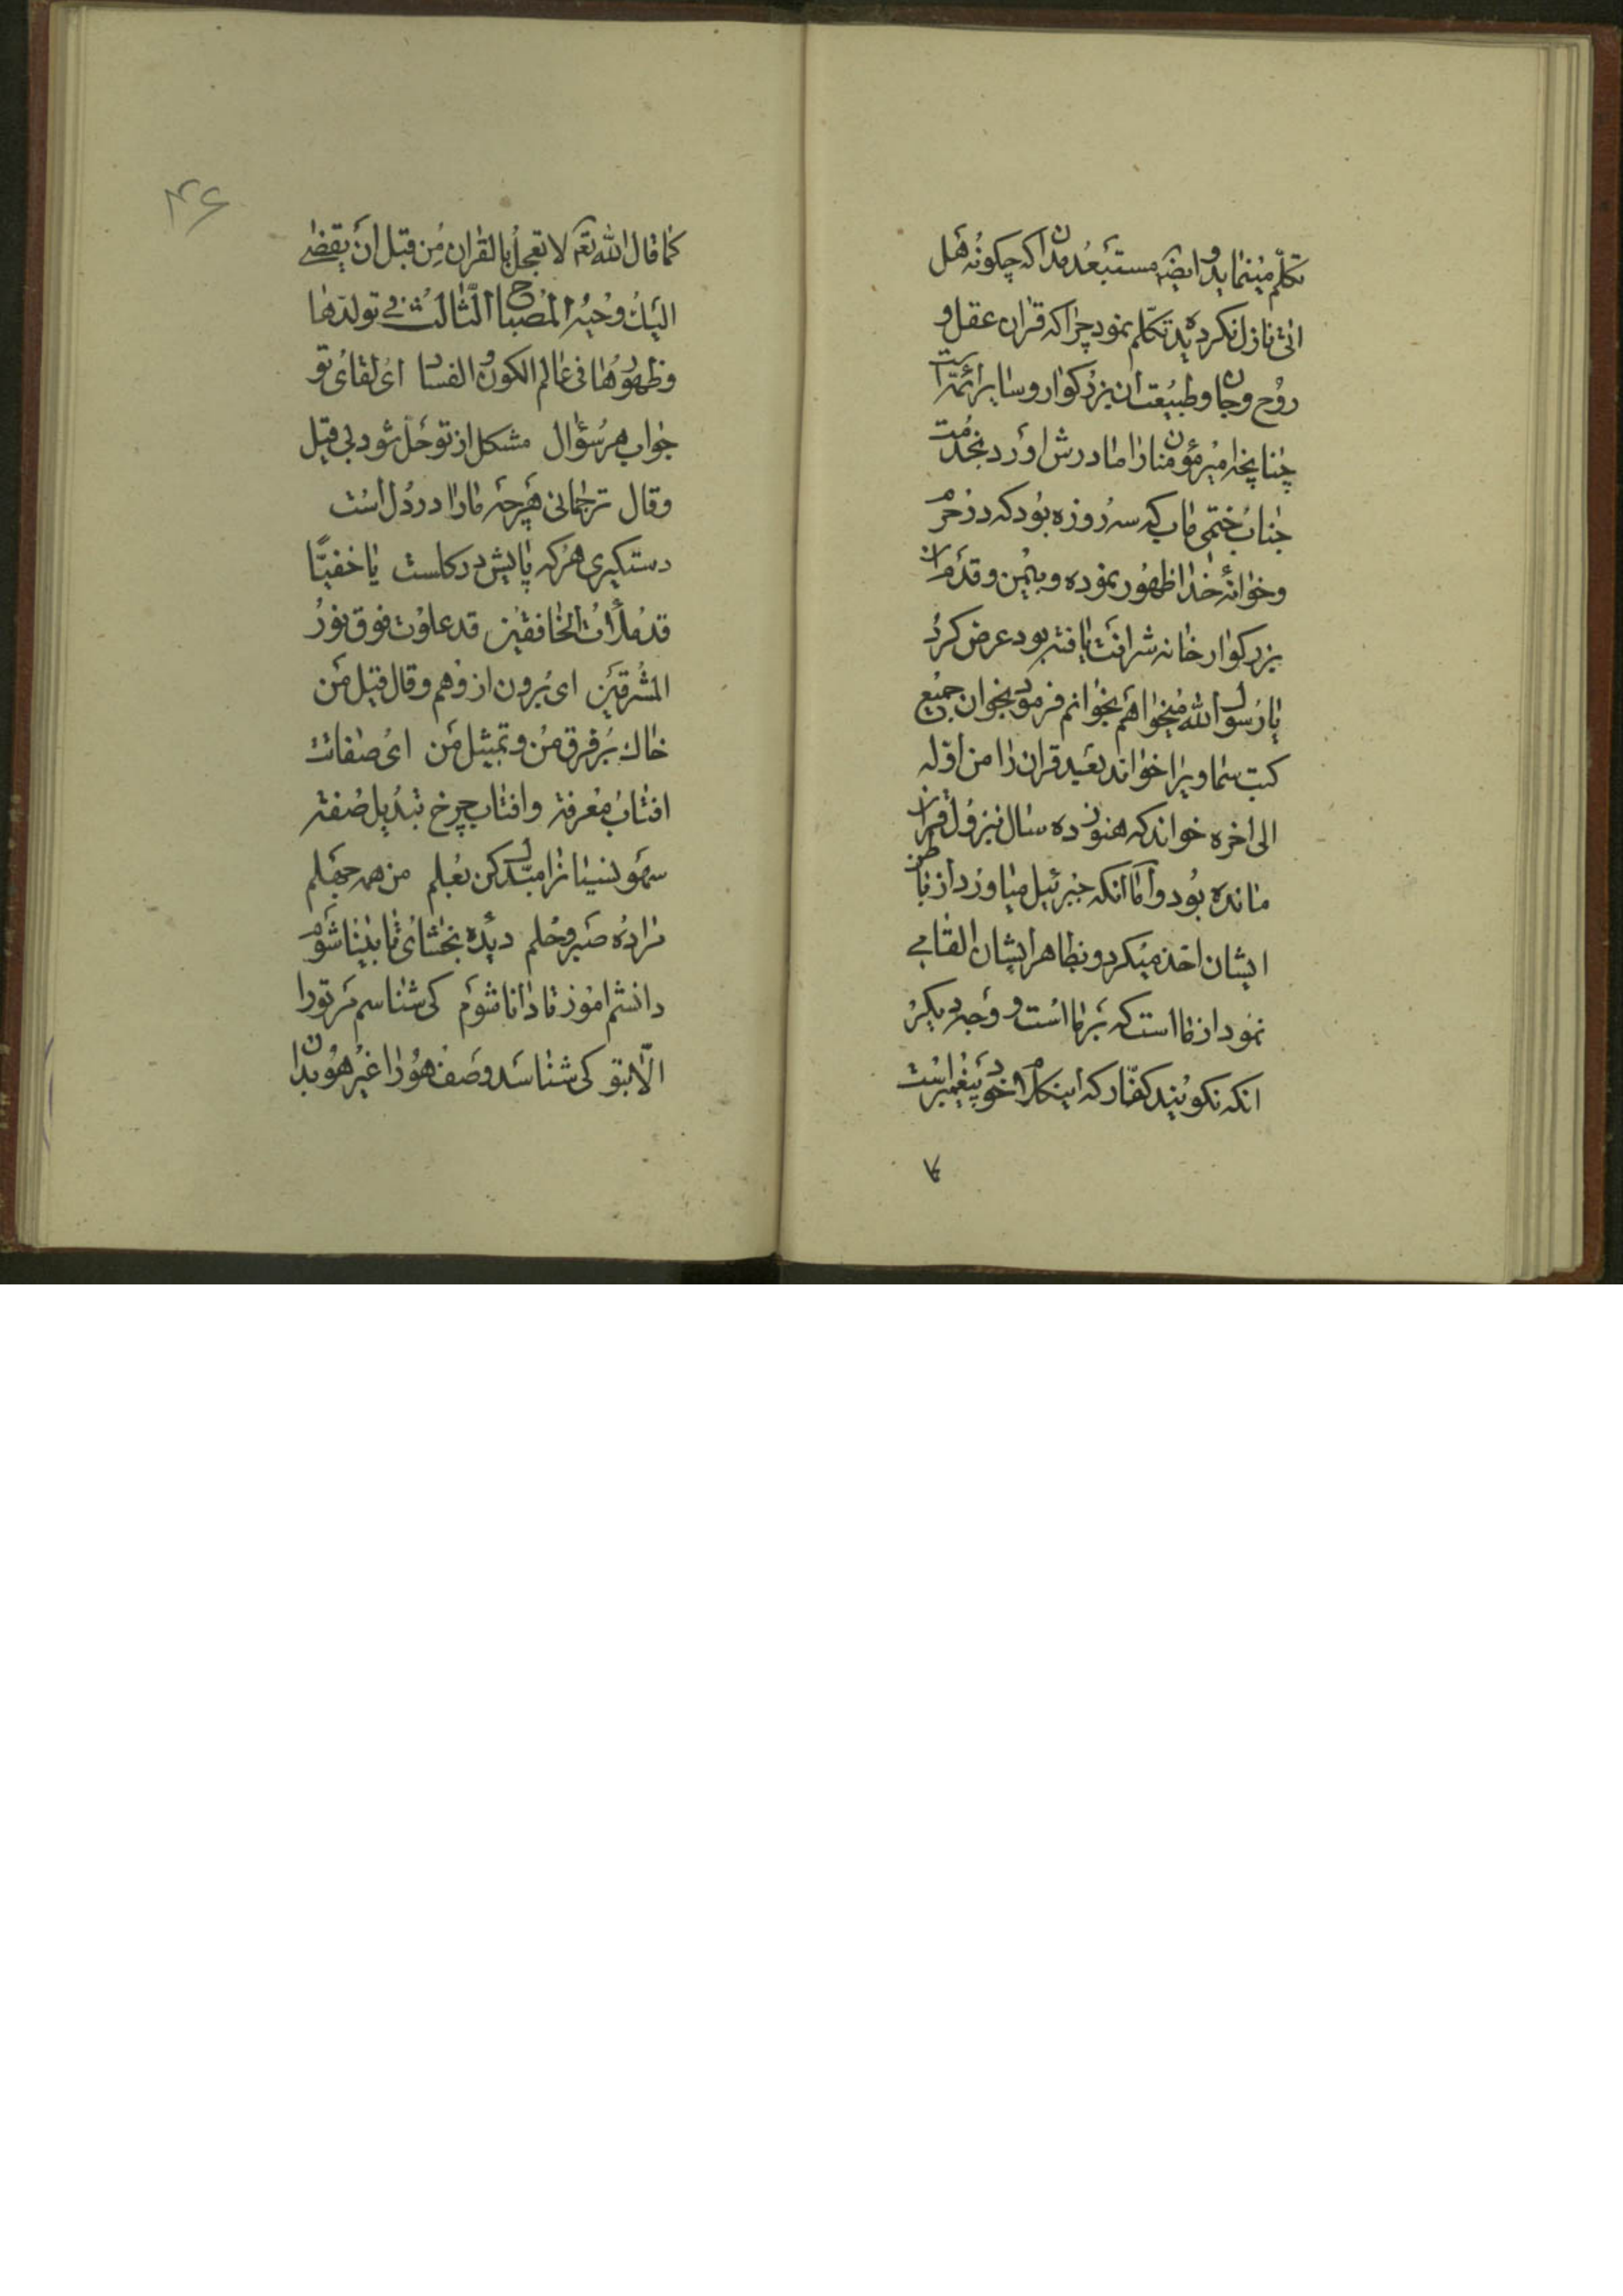 تکلّم مینماید و اینرا مستبعد مدان که چکونه هل
اتی نازل نکرده بد تکلّم نمود چرا که قران عقل و
روح و جان و طبیعت ان بزرکوار و سایر ائمّه است
چنانچه امیر مؤمنانرا مادرش اورد بخدمت
جناب ختمی ماب که سه روزه بود که در حرم
و خوانهٔ خدا ظهور نموده و بیمن و قدم ان
بزرکوار خانه شرافت یافته بود عرض کرد
یا رسول الله میخواهم بخوانم فرمود بخوان جمیع
کتب سماویرا خواند بعد قران را من اوّله
الی اخره خواند که هنوز ده سال نزول قران
مانده بود و امّا انکه جبرئیل میاورد از باطن
ایشان اخذ میکرد و بظاهر ایشان القا می
نمود از ما است که بر ما است و وجه دیکر
انکه نکویند کفّار که اینکلام خود پیغمبر است
۴۶
کما قال الله تعم لا تعجل بالقران من قبل ان یقضی
الیك وحیه المصباح الثالث فی تولدها
و ظهورها فی عالم الکون و الفساد ای لقای تو
جواب هر سؤال مشکل از تو حل شود بی قیل
و قال ترجمانی هرچه ما را در دل است
دستکیری هر که پایش در کلست یا خفیّا
قد ملأت الخافقین قد علوت فوق نور
المشرقین ای برون از وهم و قال قیل من
خاك بر فرق من و تمثیل من ای صفات
افتاب معرفة و افتاب چرخ بند یل صفته
سهو نسیانرا مبدّل کن بعلم من همه جهلم
مرا ده صبر و حلم دیده بخشای تا بینا شوم
دانشم اموز تا دانا شوم کی شناسم مر تو را
الّا بتو کی شناسد وصف هو را غیر هو بدان